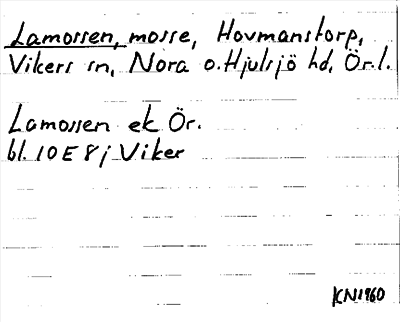 Lamossen, mosse, Hovmanstorp,
Vikers sn, Nora o. Hjulsjö hd, Ör.l.
Lamossen ek Ör.
bl. 10E 8j Viker
KN1960